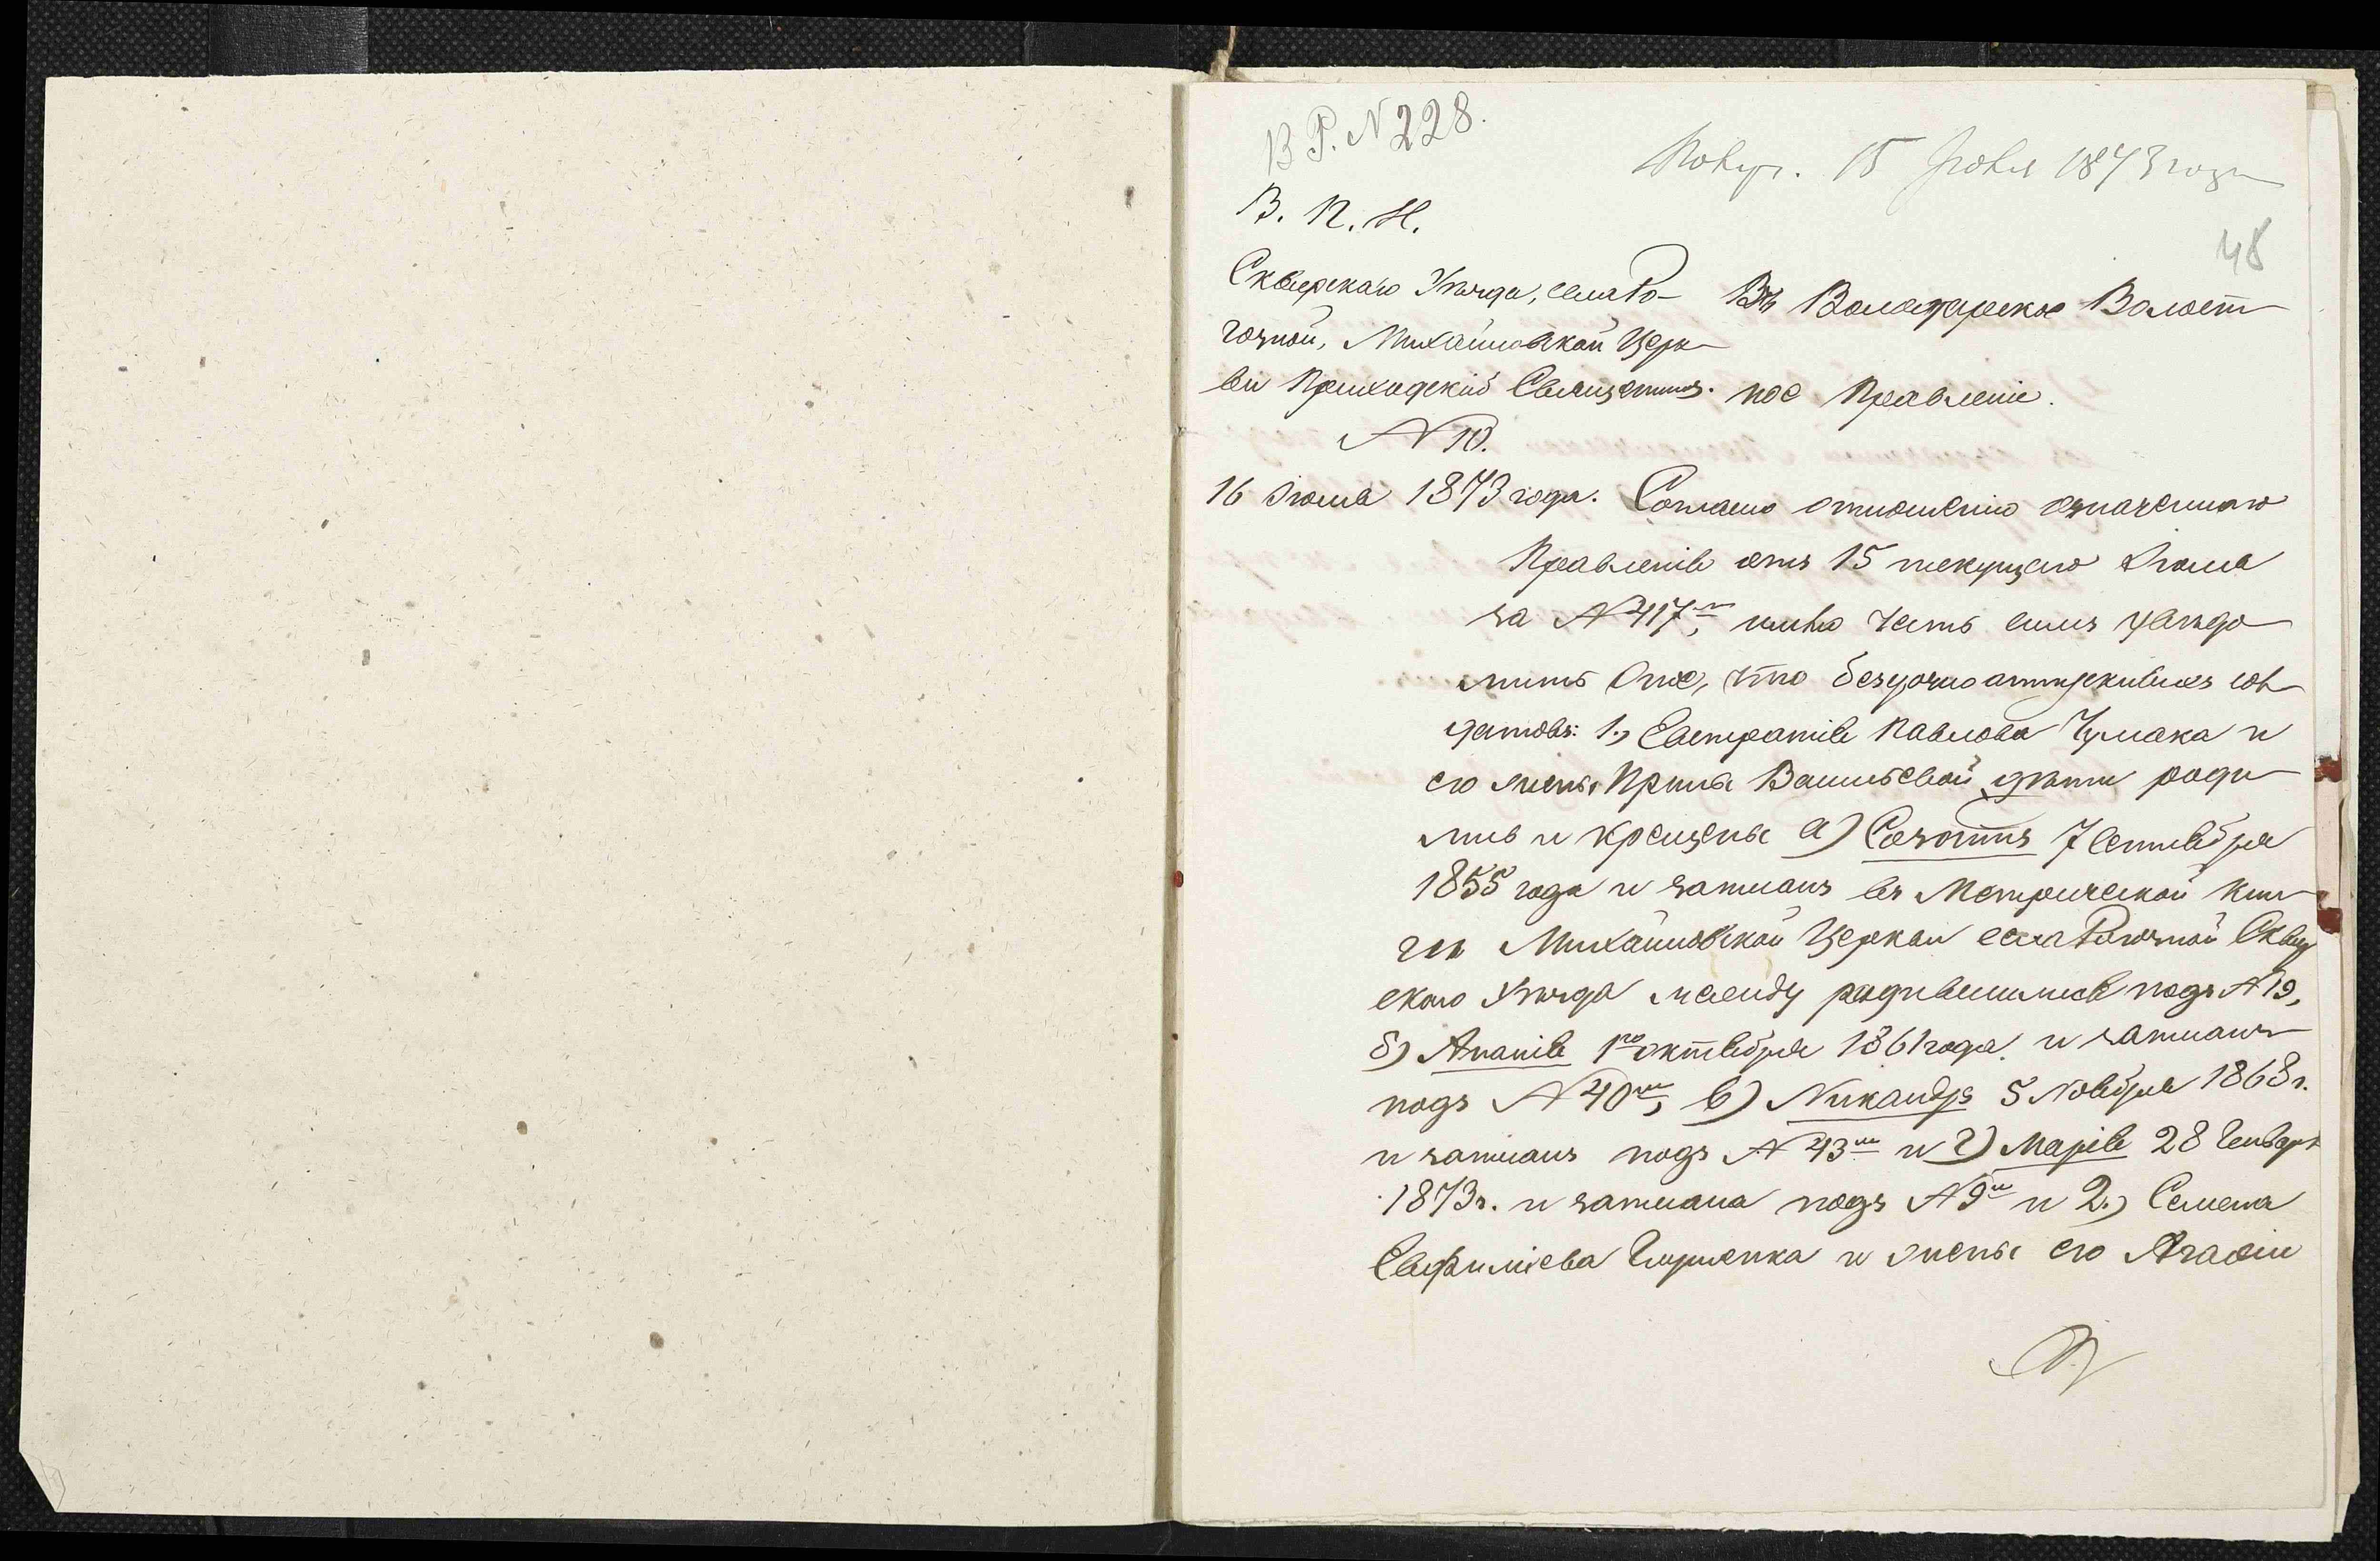 В Р. N 228.
Получ. 15 Іюня 1873 года
48
В. П. И.
Сквирскаго Уѣзда, села Ро-
гозной, Михайловской Цер-
кви Приходскій Священникъ.
N 10.
16 Іюня 1873 года.
Въ Володарское Волост-
ное Правленіе.
Согласно отношенію означеннаго
Правленія отъ 15 текущаго Іюня
за N 417м, имѣю честь симъ увѣдо-
мить Оное, что безсрочноотпускныхъ сол-
датовъ: 1., Евстратія Павлова Чумака и
его жены Ирины Васильевой дѣти роди-
лись и крещены а) Созонтъ 7 Сентября
1855 года и записанъ въ Метрической Кни-
гѣ Михайловской Церкви села Рогозной Сквир
скаго Уѣзда между родившимися подъ N 19,
б) Ананія 1го октября 1861 года и записанъ
подъ N 40м, в) Никандръ 5 Ноября 1868 г.
и записанъ подъ N 43м и г) Марія 28 Генваря
1873 г. и записана подъ N 9м и 2.) Семена
Евфиміева и жены его Агафіи